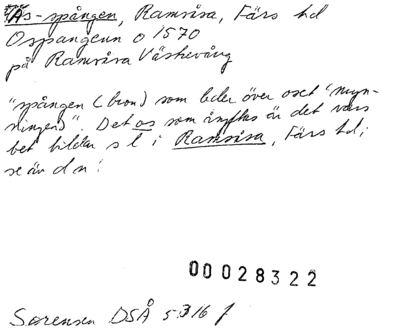 Ås-spången, Ramsåsa, Färs hd
Ospangenn o 1570
på Ramsåsa Västevång
"spången (bron) som leder över oset (mynningen)" Det os som är det vars
bet bildar s l i Ramsåsa, Färs hd,
se äv d n!
00028322
Sørensen DSÅ s 316 f